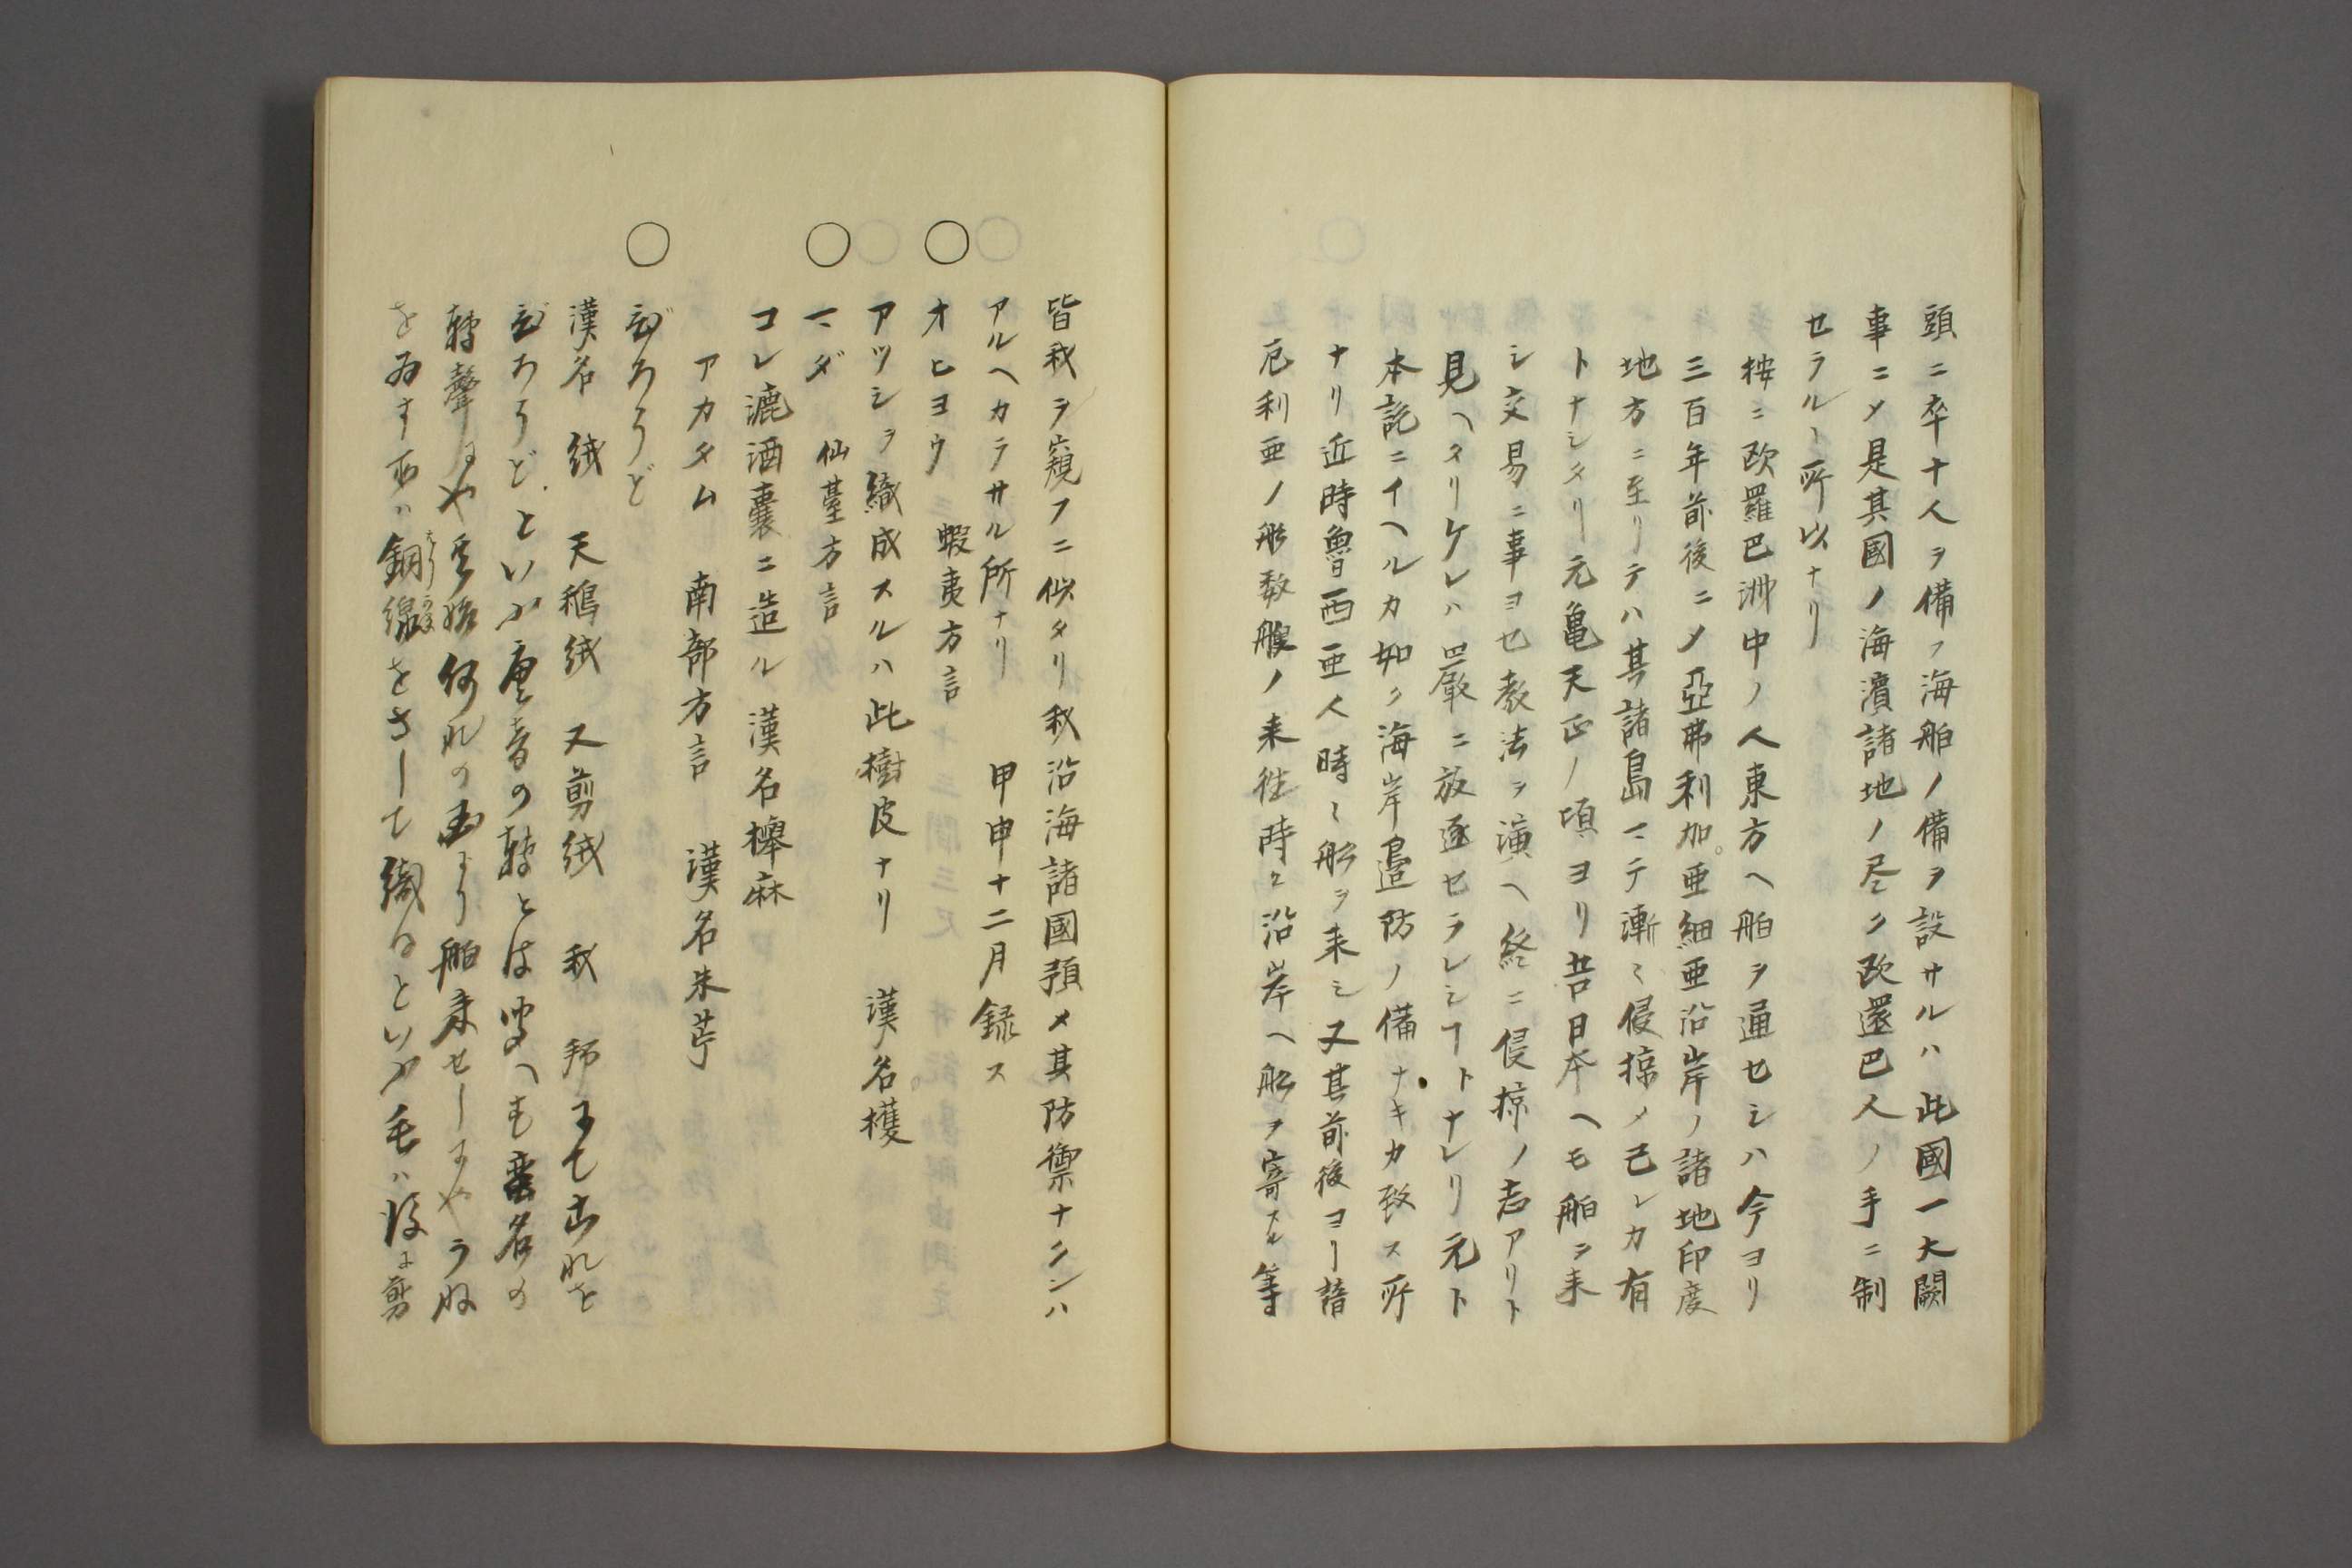 頭ニ卒十人ヲ備フ海舶ノ備ヲ設サルハ此國一大闕
事ニメ是其國ノ海濵諸地ノ尽ク欧邏巴人ノ手ニ制
セラルヽ所以ナリ
按ニ欧羅巴洲中ノ人東方ヘ舶ヲ通セシハ今ヨリ
三百年前後ニメ亞弗利加。亜細亜沿岸ノ諸地印度
地方ニ至リテハ其諸島マテ漸〻侵掠メ己レカ有
トナシタリ元亀天正ノ頃ヨリ吾日本ヘモ舶ヲ来
シ交易ニ事ヨセ教法ヲ演ヘ終ニ侵掠ノ志アリト
見ヘタリケレハ嚴ニ放逐セラレシヿトナレリ元ト
本記ニイヘルカ如ク海岸邉防ノ備ナキカ致ス所
ナリ近時魯西亜人時〻船ヲ来シ又其前後ヨリ諳
厄利亜ノ船数艘ノ来往時々沿岸ヘ船ヲ寄スル等
皆我ヲ窺フニ似タリ我沿海諸國預メ其防禦ナクンハ
アルヘカラサル所ナリ 甲申十二月録ス
○ オヒヨウ 蝦夷方言
アツシヲ織成スルハ此樹皮ナリ 漢名㰅
○ マダ 仙臺方言
コレ漉酒嚢ニ造ル漢名櫸麻
アカタム 南部方言 漢名朱苧
○ びろうど
漢名 絨 天鵝絨 又剪絨 我邦にて出れを
びろうどといふ唐音の轉とは聞へも蛮名の
轉聲にや 何れの國より舶来せしにやうね
をゐす所ハ銅線をさして織るといふ毛ハ後に剪